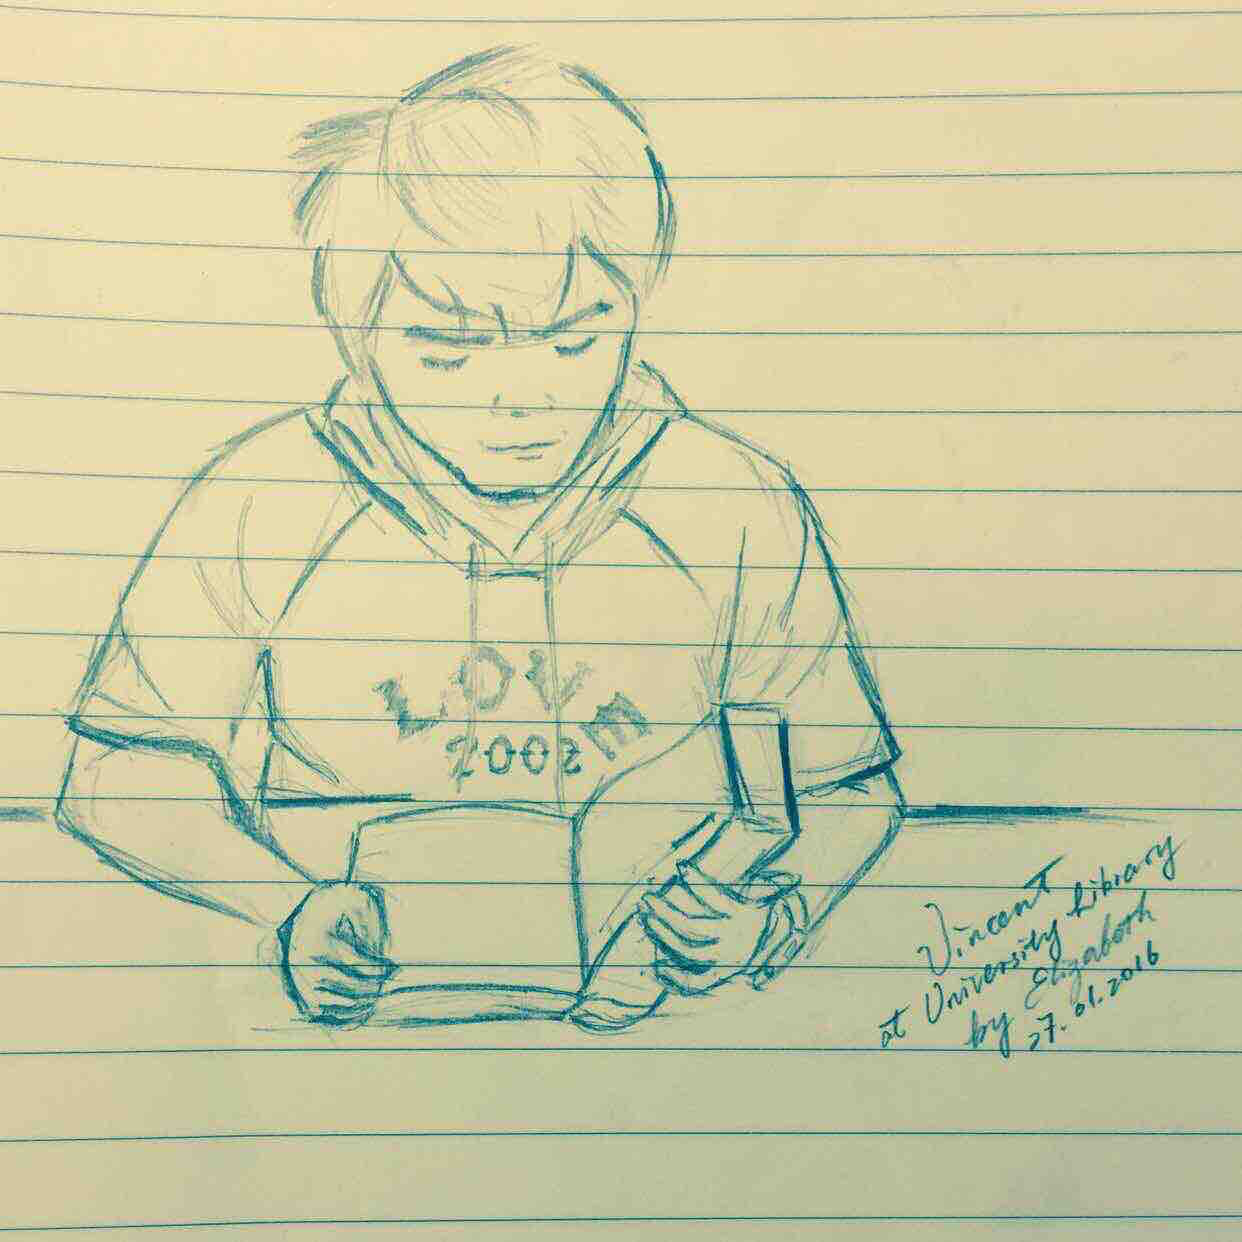 LOVE
2002
Vincent
at University Library
by Elizabeth
27.01.2016